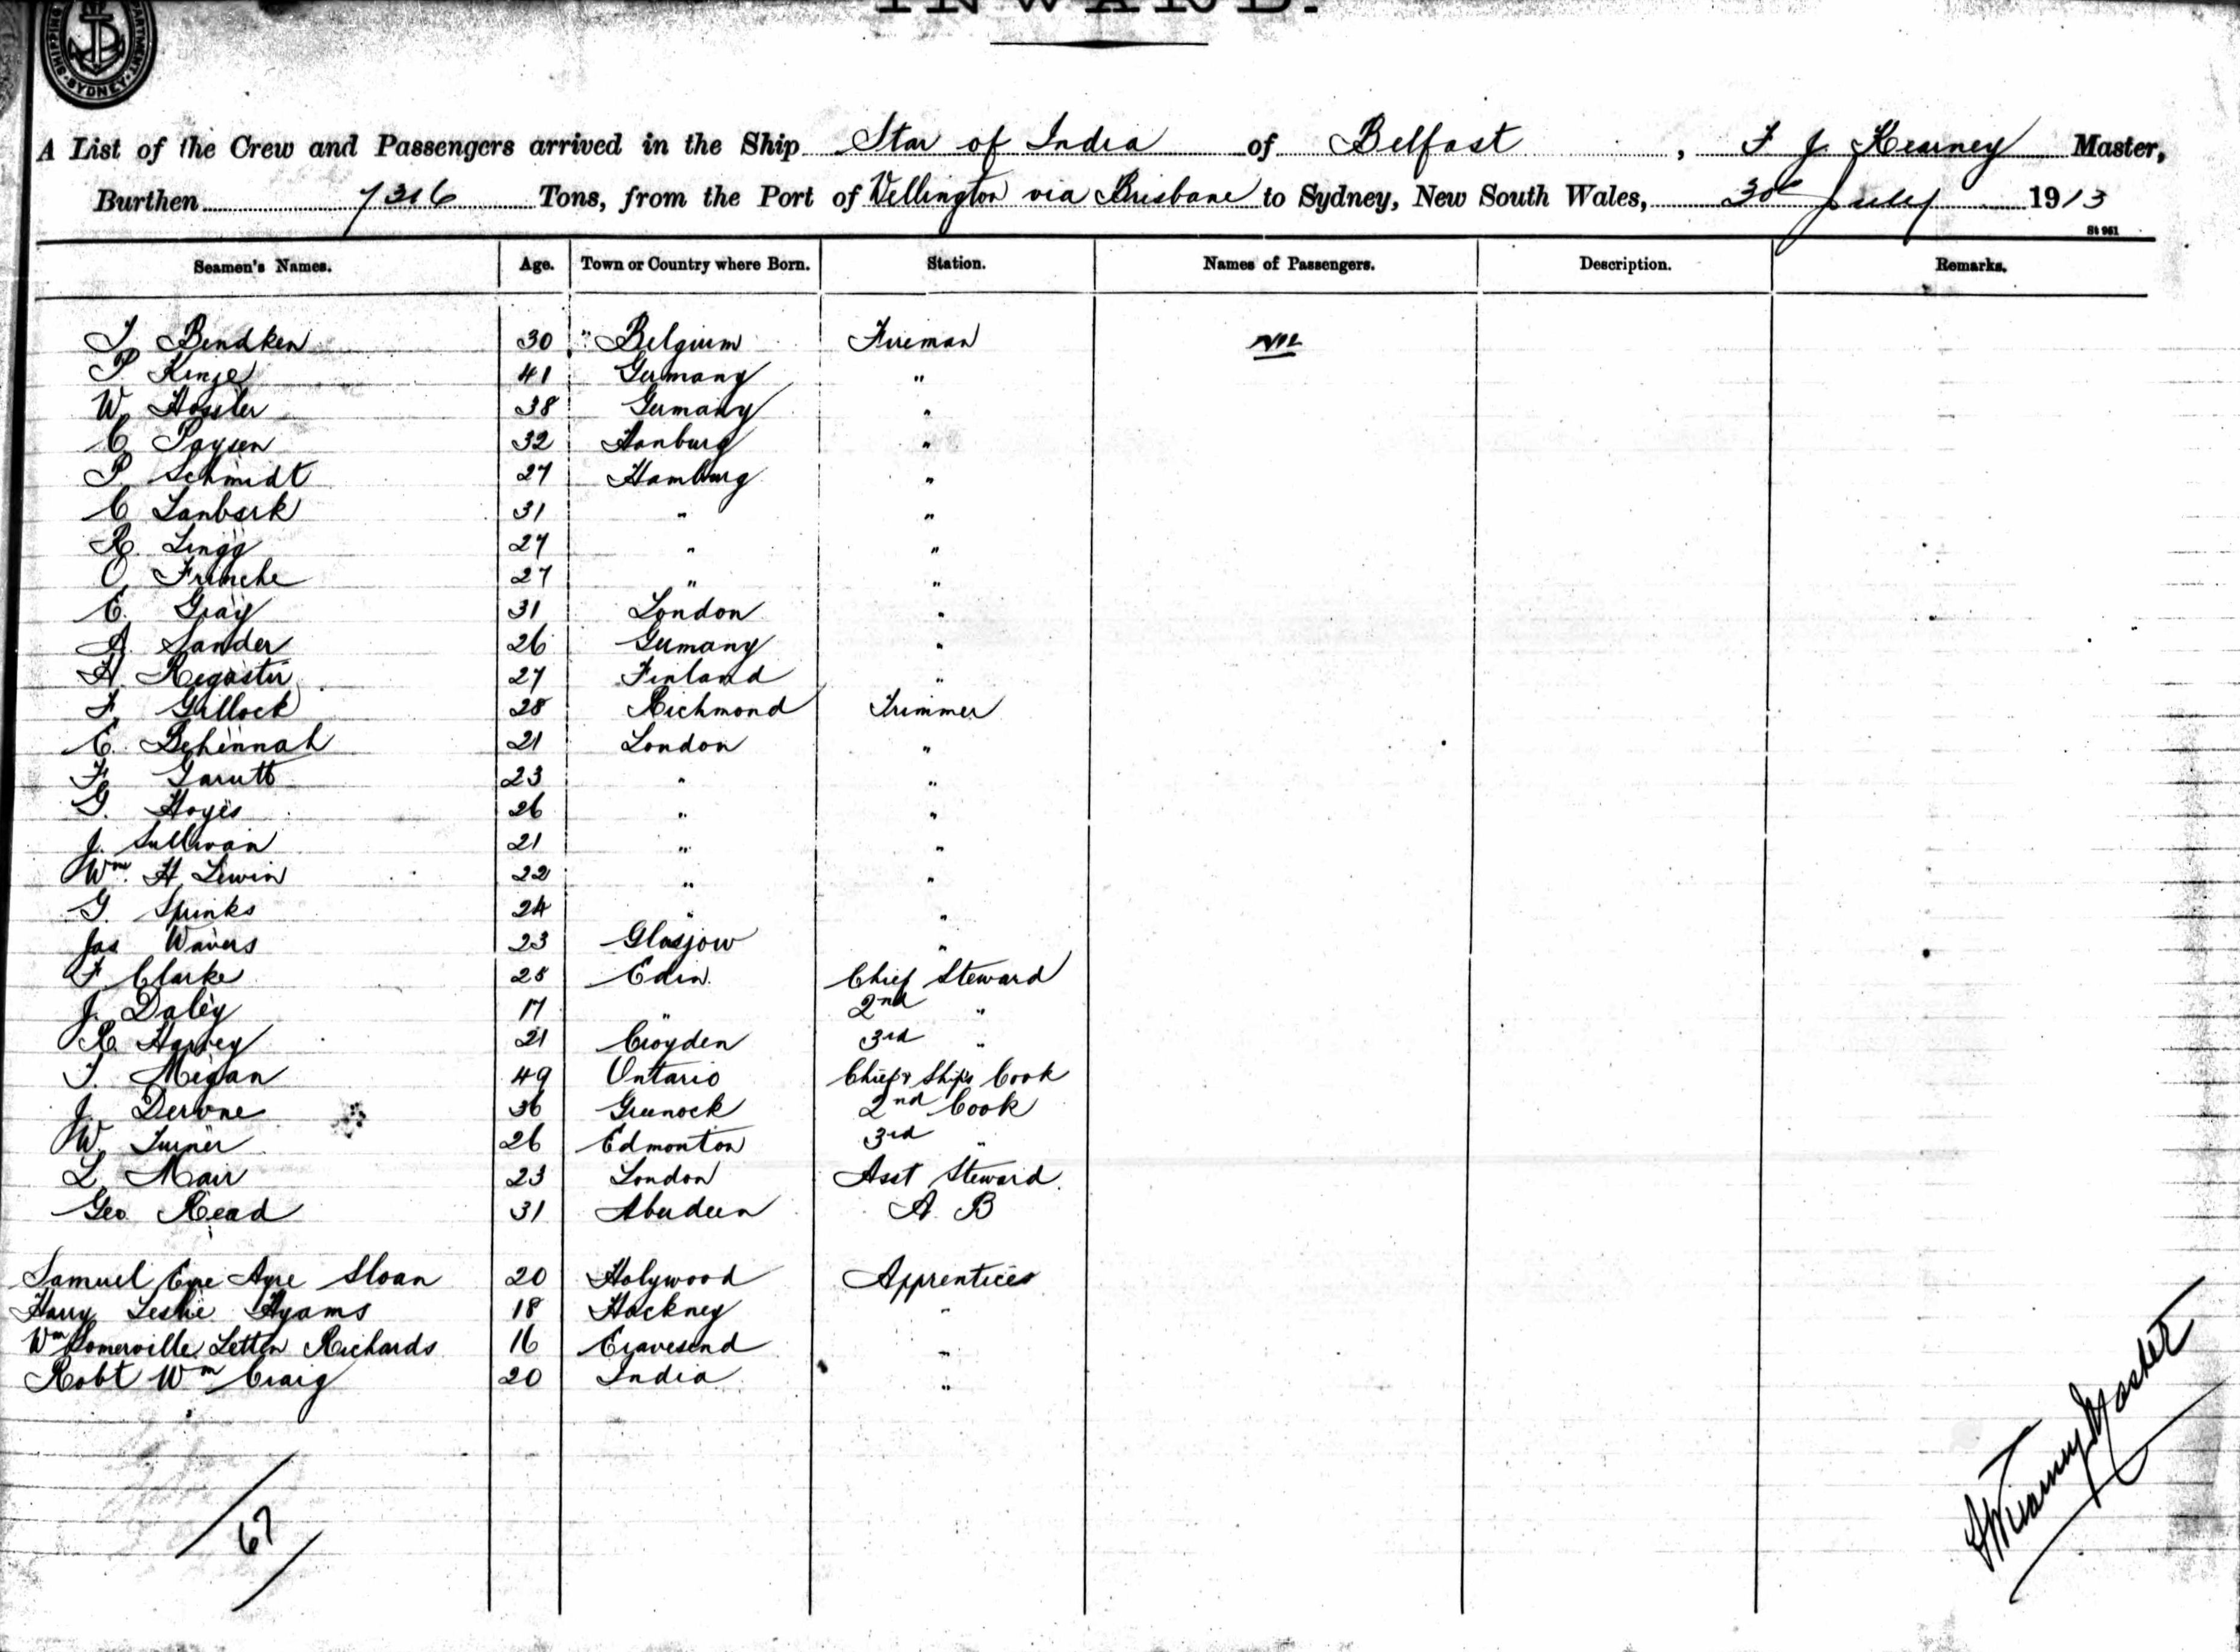 INWARD.
SYDNEY
A List of the Crew and Passengers arrived in the Ship Star of India of Belfast, F J Kearney Master,
Burthen 7316 Tons, from the Port of Wellington via Brisbane to Sydney, New South Wales, 30th July 1913
St 961
Seamen's Names. Age. Town or Country where Born. Station. Names of Passengers. Description. Remarks.
J Bendken 30 Belgium Fireman Nil
P Kinze 41 Germany "
W Hossler 38 Germany "
C Paysen 32 Hanburg "
P Schmidt 27 Hamburg "
C Lanbark 31 " "
R. Lingg 27 " "
O Frinche 27 " "
C. Gray 31 London "
A. Sander 26 Germany "
H. Regastir 27 Finland "
F Gillock 28 Richmond Trimmer
C. Behennah 21 London "
F Garutt 23 " "
G. Hoyes 26 " "
J. Sullivan 21 " "
Wm. H Lewin 22 " "
G. Spinks 24 " "
Jas Wavers 23 Glasjow "
F Clarke 28 Edin. Chief Steward
J. Daley 17 " 2nd "
R. Harvey 21 Croyden 3rd "
J. Megan 49 Ontario Chief & Ship's Cook
J. Dervne 36 Greenock 2nd Cook
W. Turner 26 Edmonton 3rd "
L Mair 23 London Asst Steward.
Geo Read 31 Aberdeen A. B
Samuel Eyre Ayre Sloan 20 Holywood Apprentices
Harry Leslie Hyams 18 Hackney "
Wm Somerville Letten Richards 16 Gravesend "
Robt Wm Craig 20 India "
67
Master